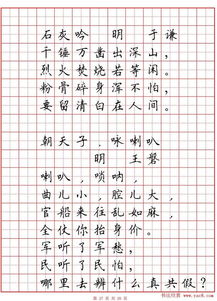 石灰吟 明 于谦
千锤万凿出深山，
烈火焚烧若等闲。
粉骨碎身浑不怕，
要留清白在人间。
朝天子·咏喇叭
明 王磐
喇叭，唢呐，
曲儿小，腔儿大，
官船来往乱如麻，
全仗你抬身价。
军听了军愁，
民听了民怕，
哪里去辨什么真共假？
第 27 页 共 28 页